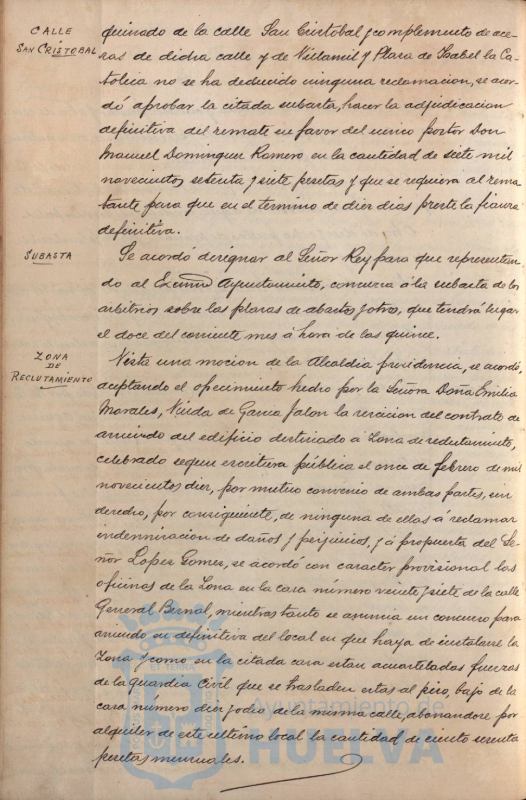 CALLE
SAN CRISTOBAL
quinado de la calle San Cristobal y complemento de ace-
ras de dicha calle y de Villamil y Plaza de Isabel la Ca-
tolica no se ha deducido ninguna reclamacion, se acor-
dó aprobar la citada subasta, hacer la adjudicacion
definitiva del remate en favor del unico postor Don
Manuel Dominguez Romero en la cantidad de siete mil
novecientas setenta y siete pesetas y que se requiera al rema
tante para que en el termino de diez dias preste la fianza
definitiva.
SUBASTA
Se acordó designar al Señor Rey para que representan-
do al Excmo Ayuntamiento, concurra á la subasta de los
arbitrios sobre las plazas de abastos y otros, que tendrá lugar
el doce del corriente mes á hora de las quince.
ZONA
DE
RECLUTAMIENTO
Vista una mocion de la Alcaldia presidencia, se acordó,
aceptando el ofrecimiento hecho por la Señora Doña Emilia
Morales, Viuda de Garcia Jalon la rescision del contrato de
arriendo del edificio destinado á Zona de reclutamiento,
celebrado segun escritura pública el once de febrero de mil
novecientos diez, por mutuo convenio de ambas partes, sin
derecho, por consiguiente, de ninguna de ellas á reclamar
indemnizacion de daños y perjuicios, y á propuesta del Se-
ñor Lopez Gomez, se acordó con caracter provisional las
oficinas de la Zona en la casa número veinte y siete de la calle
General Bernal, mientras tanto se anuncia un concurso para
arriendo en definitiva del local en que haya de instalarse la
Zona y como en la citada casa estan acuartelados fuerzas
de la guardia Civil que se trasladen estas al piso, bajo de la
casa número diez y ocho de la misma calle, abonandose por
alquiler de este ultimo local la cantidad de ciento sesenta
pesetas mensuales.
Ayuntamiento de
HUELVA